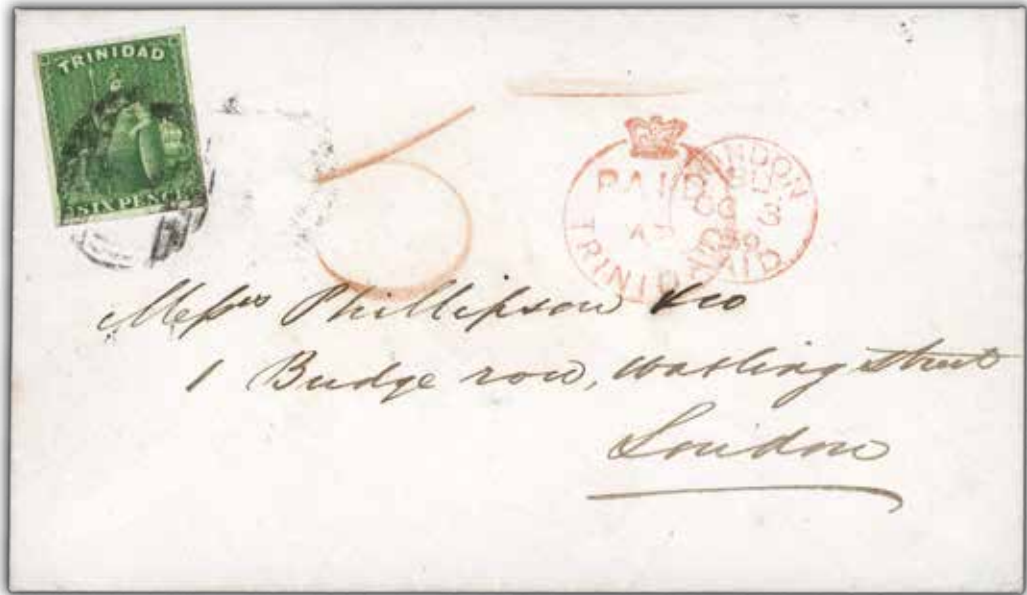 TRINIDAD
SIX PENCE
PAID
TRINIDAD
LONDON
3
PAID
Messrs Phillipson & Co
1 Budge row, Watling Street
London